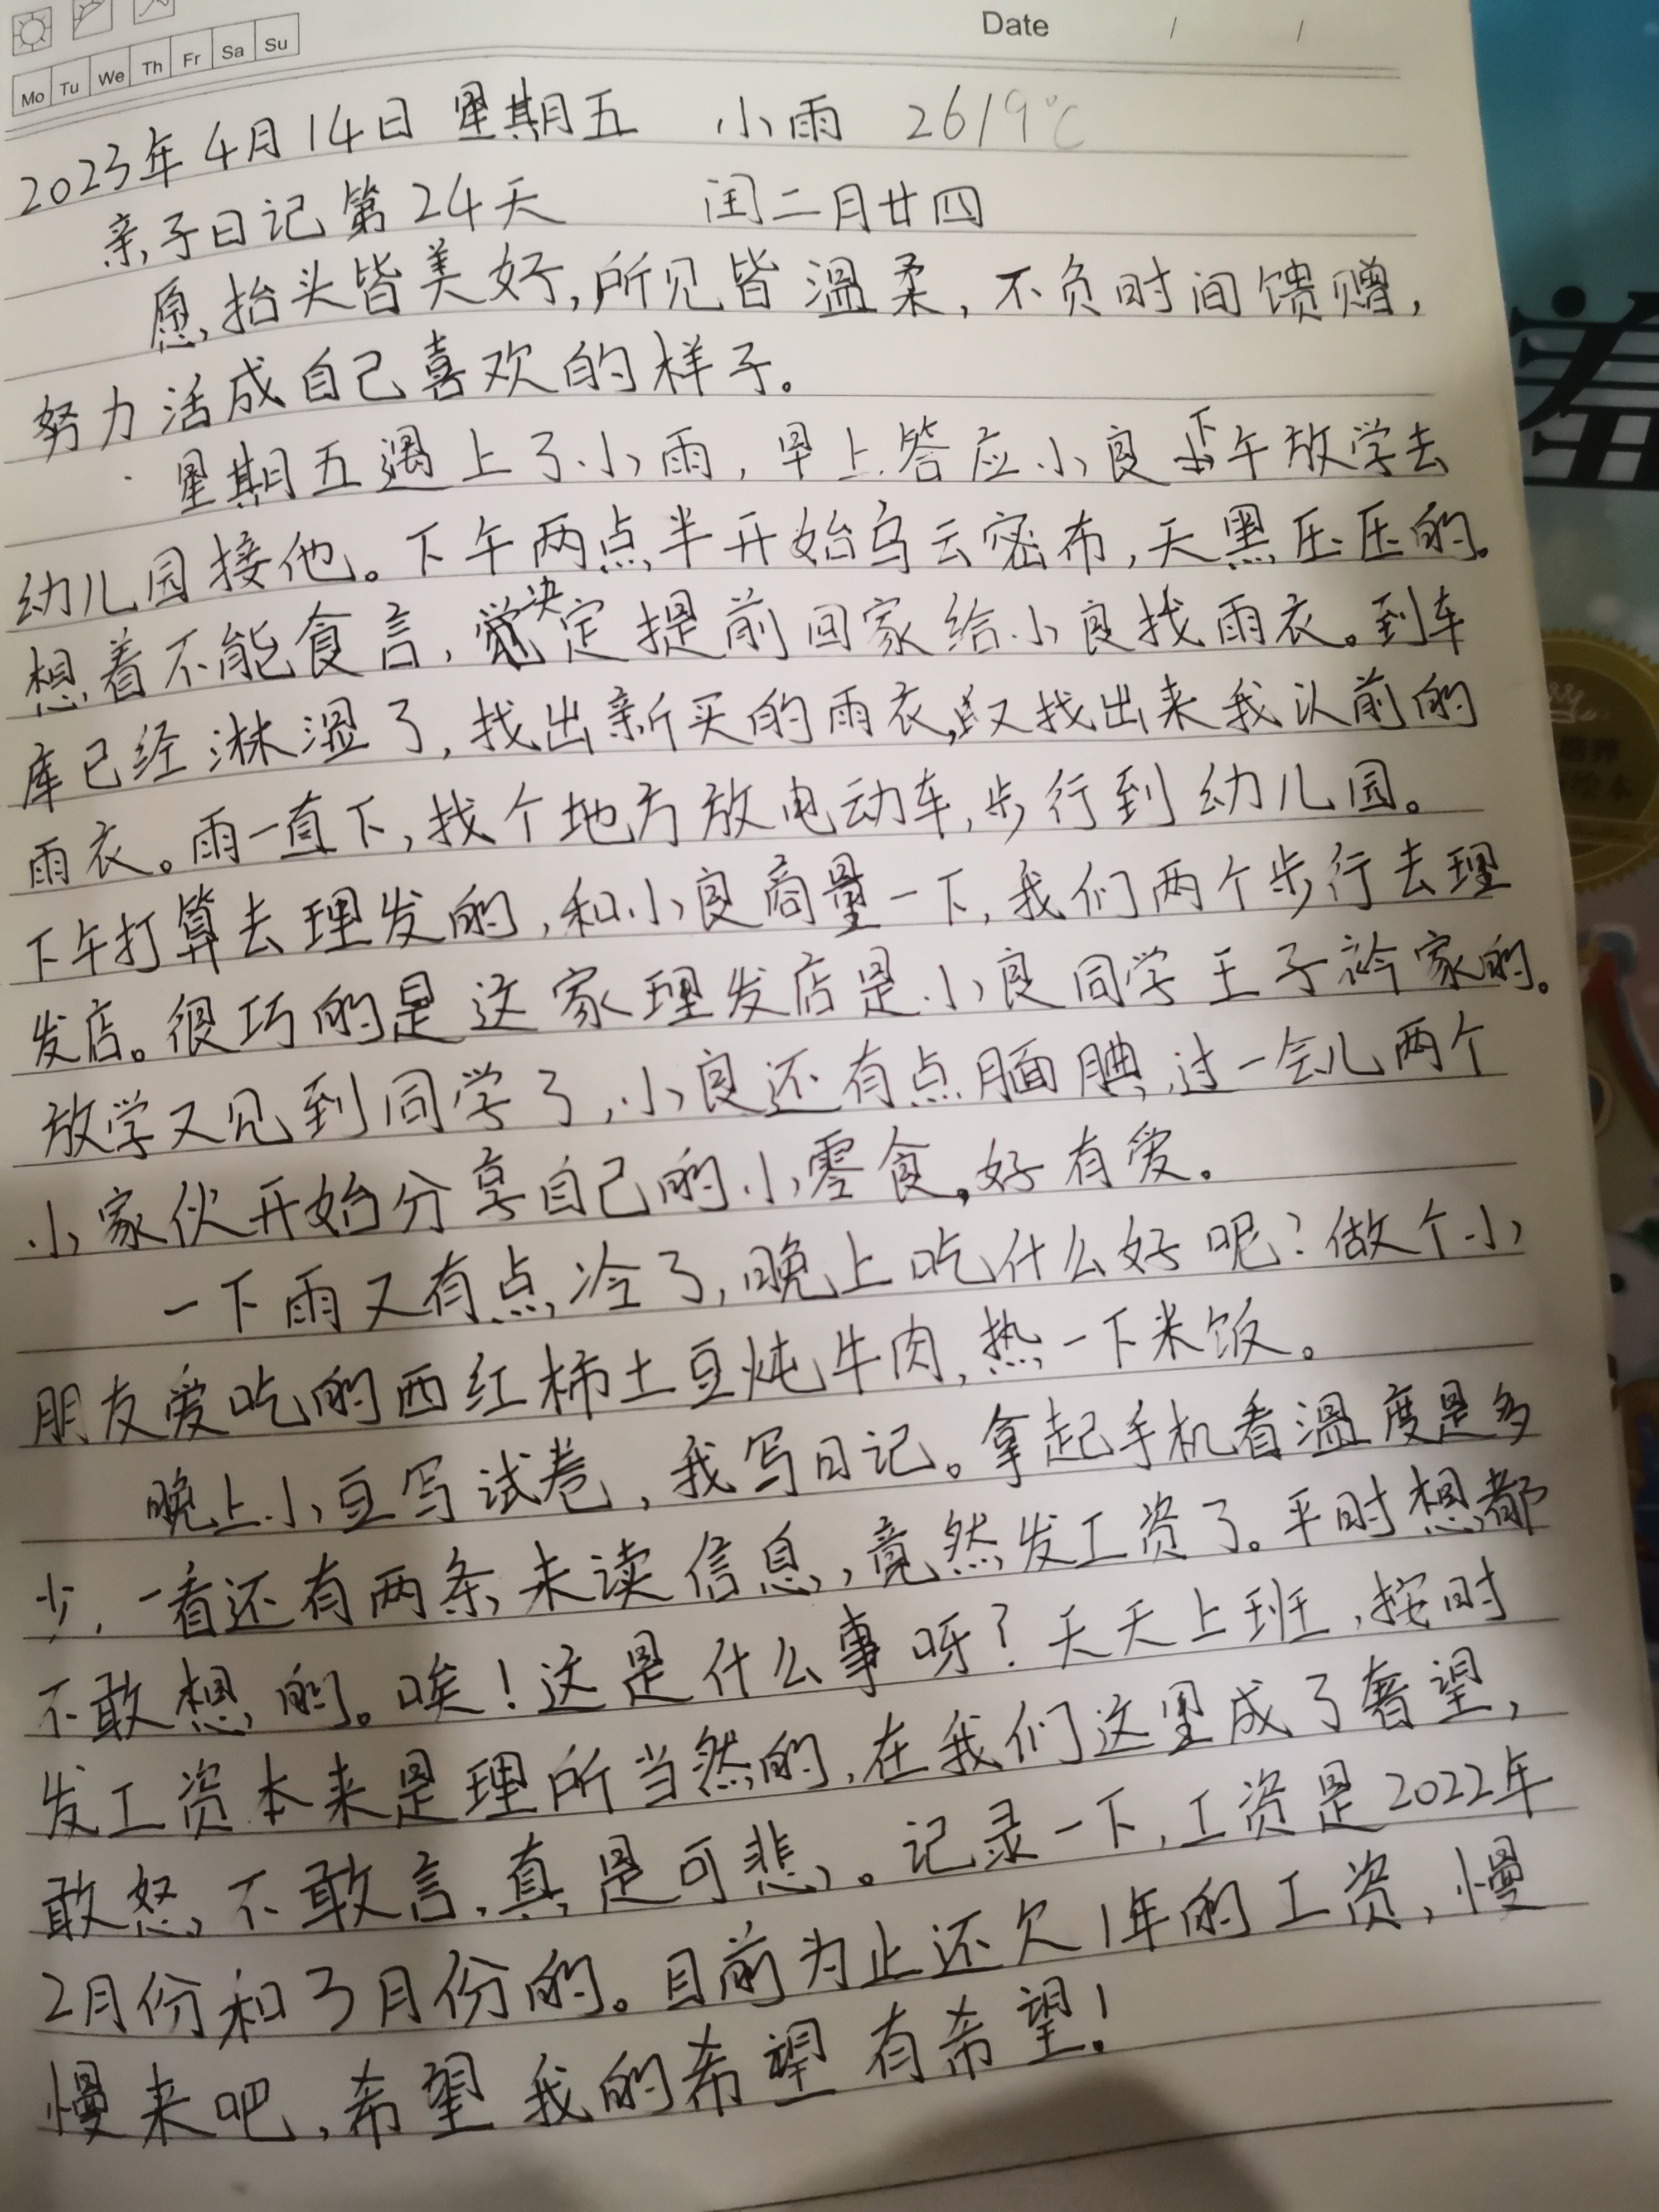 Date / /
Mo Tu We Th Fr Sa Su
2023年4月14日 星期五 小雨 26/9℃
亲子日记第24天 闰二月廿四
愿抬头皆美好,所见皆温柔,不负时间馈赠,
努力活成自己喜欢的样子。
星期五遇上了小雨,早上答应小良下午放学去
幼儿园接他。下午两点半开始乌云密布,天黑压压的。
想着不能食言,决定提前回家给小良找雨衣。到车
库已经淋湿了,找出新买的雨衣,又找出来我以前的
雨衣。雨一直下,找个地方放电动车,步行到幼儿园。
下午打算去理发的,和小良商量一下,我们两个步行去理
发店。很巧的是这家理发店是小良同学王子衿家的。
放学又见到同学了,小良还有点腼腆,过一会儿两个
小家伙开始分享自己的小零食。好有爱。
一下雨又有点冷了,晚上吃什么好呢?做个小
朋友爱吃的西红柿土豆炖牛肉,热一下米饭。
晚上小豆写试卷,我写日记。拿起手机看温度是多
少,一看还有两条未读信息,竟然发工资了。平时想都
不敢想的。唉!这是什么事呀?天天上班,按时
发工资本来是理所当然的,在我们这里成了奢望,
敢怒不敢言,真是可悲。记录一下,工资是2022年
2月份和3月份的。目前为止还欠1年的工资,慢
慢来吧,希望我的希望有希望!
羞